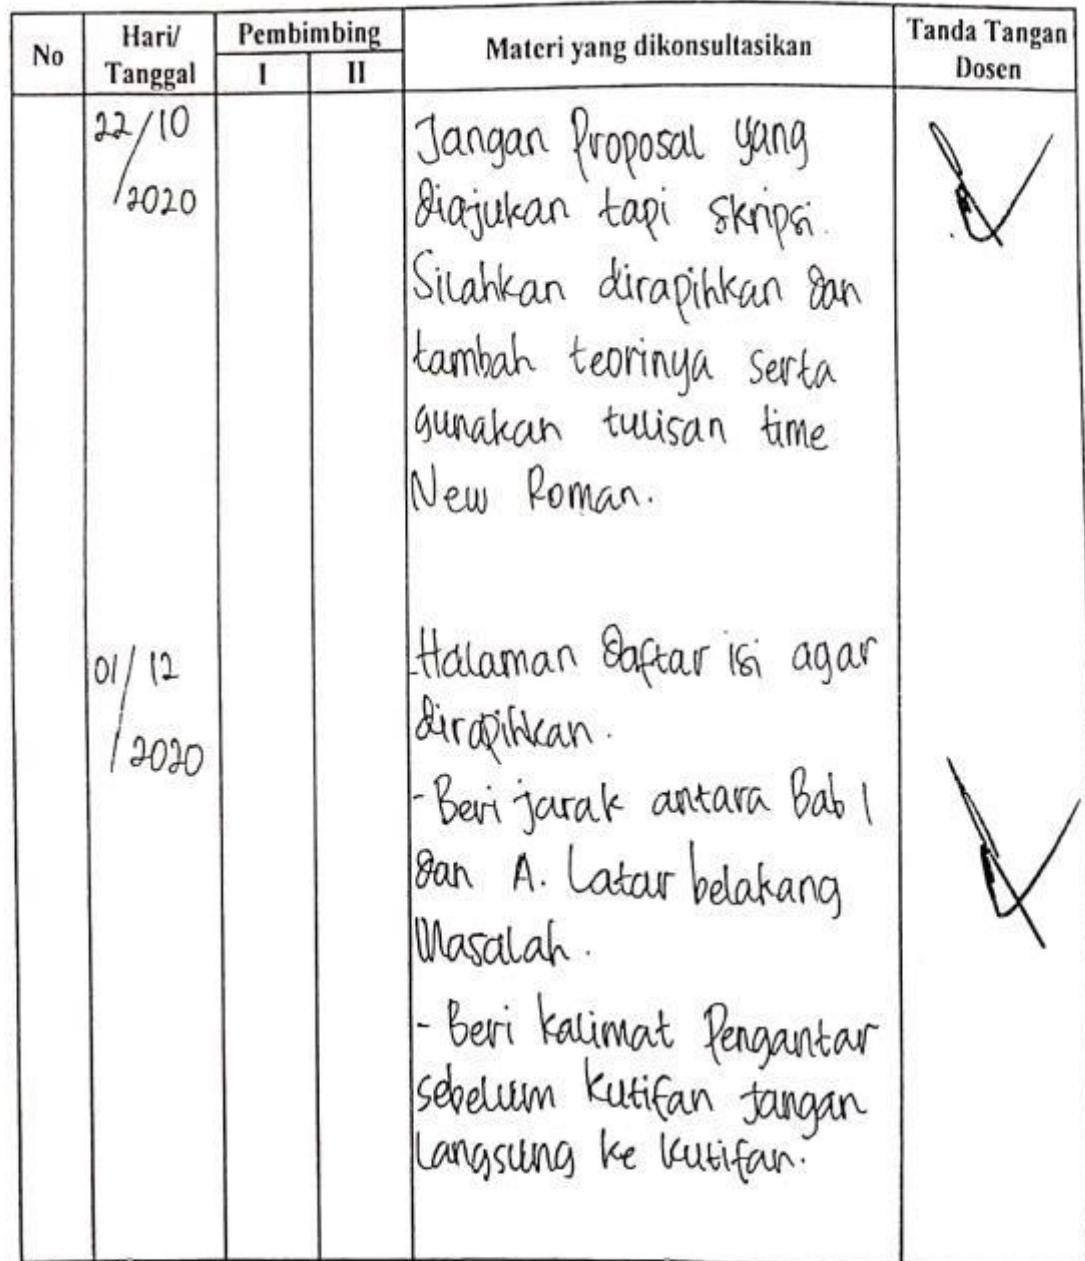 No Hari/ Tanggal Pembimbing Materi yang dikonsultasikan Tanda Tangan Dosen
I II
22/10/2020
Jangan Proposal yang
diajukan tapi skripsi.
Silahkan dirapihkan dan
tambah teorinya serta
gunakan tulisan time
New Roman.
01/12/2020
-Halaman daftar isi agar
dirapihkan.
- Beri jarak antara Bab 1
dan A. Latar belakang
Masalah.
- Beri kalimat Pengantar
sebelum kutifan jangan
langsung ke kutifan.